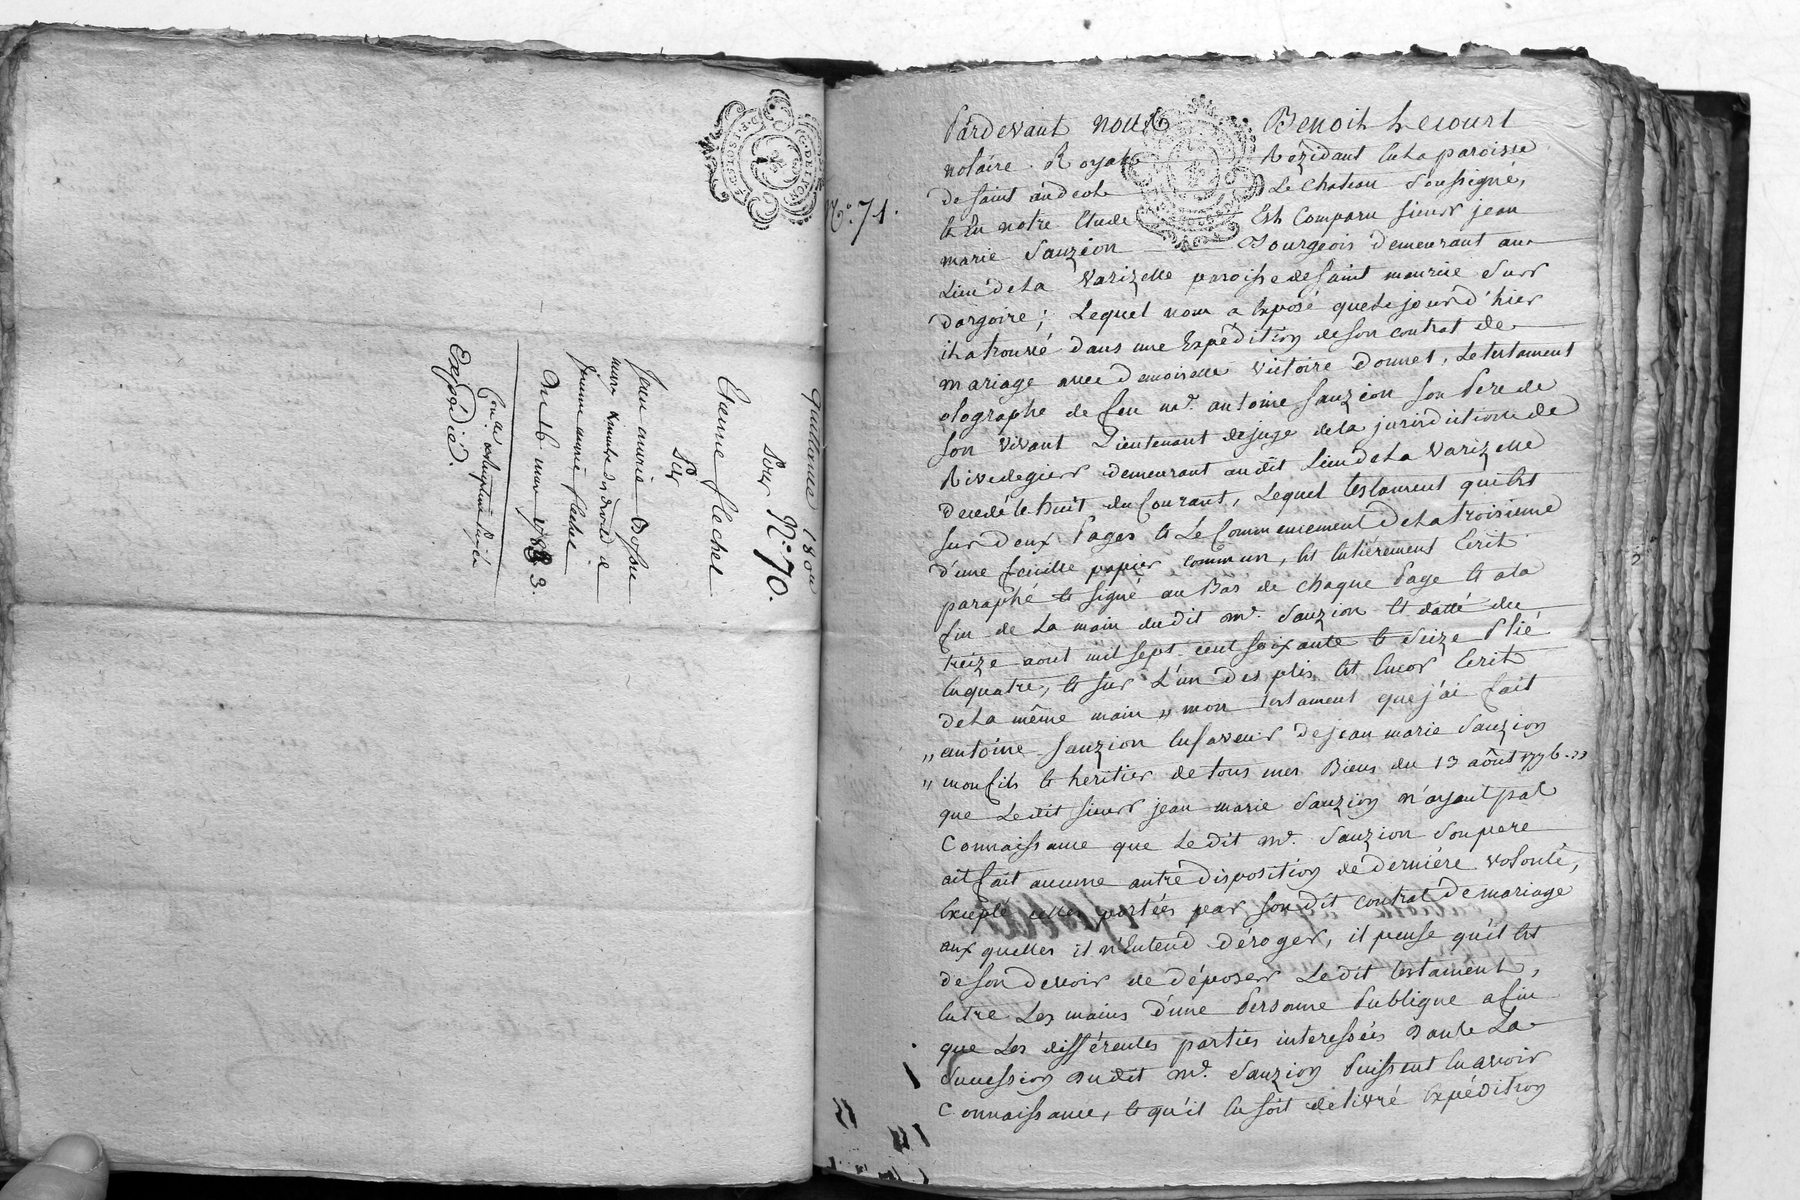 quittance 180ᵗᵗ
Pour N.° 70.
Etienne flechet
Par
Jean marie
femme flechet
Du 16 mars 1783.
Expédié.
N.° 71.
Pardevant nous Benoit Lecourt
notaire Royal Rezidant en la paroisse
de saint andeol Le Chateau soussigné,
et En notre Etude Est Comparu sieur jean
marie Sauzéon Bourgeois demeurant au
Lieu de La Varizelle paroisse de saint maurice sur
dargoire; Lequel nous a Exposé que Le jour d'hier
il a trouvé dans une Expédition de son contrat de
mariage avec demoiselle victoire Donnet, Le testament
olographe de feu mr. antoine Sauzéon son Pere de
son vivant Lieutenant de juge de la jurisdiction de
Rivedegier demeurant au dit Lieu de La Varizelle
decedé le huit du Courant, Lequel testament qui Est
sur deux Pages et Le Commencement De La troisieme
d'une feuille papier commun, Est Entiérement Ecrit
paraphé et signé au Bas de chaque Page et a la
fin de La main du dit mr. Sauzion et datté du
treize aout mil sept cent soixante et seize Plié
En quatre, et sur L'un Des plis Est Encor Ecrit
de La même main „ mon testament que j'ai fait
„ antoine Sauzion En faveur de jean marie Sauzion
„ mon fils et heritier de tous mes Biens du 13 août 1776. „
que Le dit sieur jean marie Sauzion n'ayant pas
Connaissance que Le dit mr. Sauzion son pere
ait fait aucune autre disposition de derniére volonté,
Excepté celles portées par son dit contrat de mariage
aux quelles il n'Entend Déroger, il pense qu'il Est
de son devoir de déposer Le dit testament,
Entre Les mains d'une Personne Publique afin
que Les différentes parties interessées dans La
Succession du dit mr. Sauzion Puissent En avoir
Connaissance, et qu'il En soit delivré Expédition